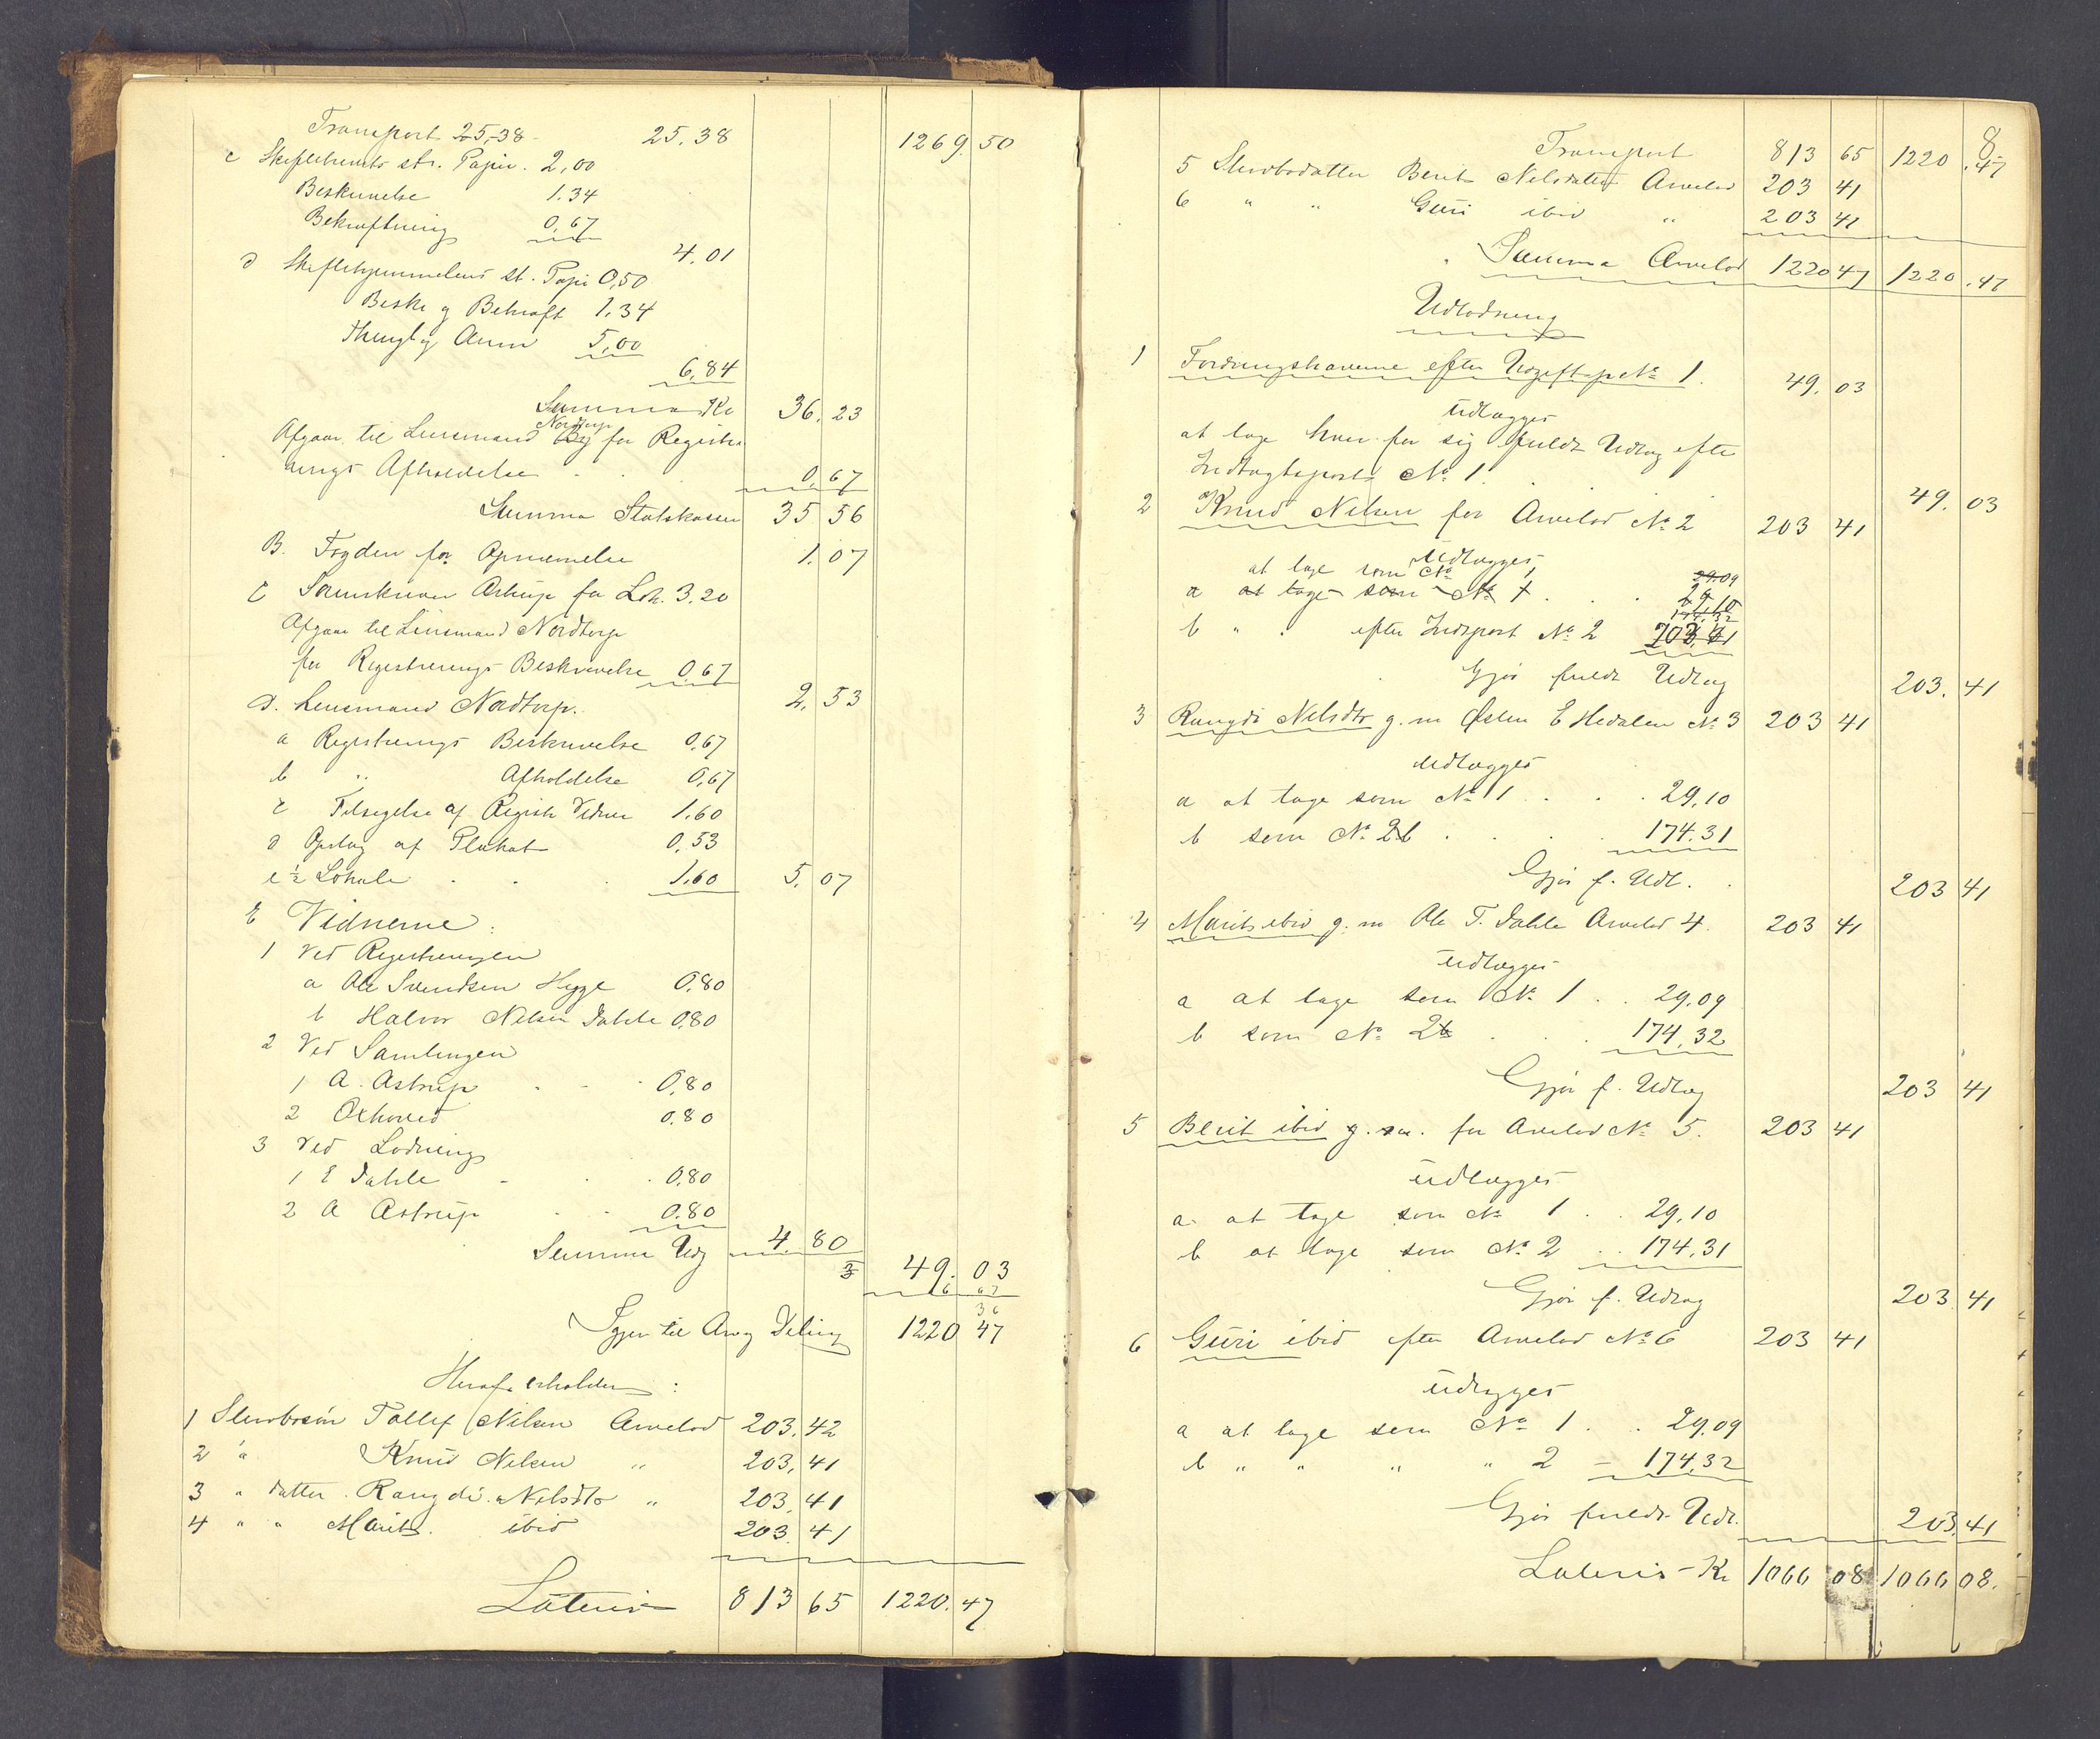 Transport 25,38 25,38 1269.50
c Skiftebrevets st. Papir. 2,00
Beskrivelse 1.34
Bekræftning 0,67
4.01
d Skiftehjemmelens st. Papir 0,50
Besk. og Bekræft 1,34
Thingl og Anm 5,00
6,84
Summa Kr 36.23
Afgaar til Lensmand Nordtorp for Registre
rings Afholdelse . . 0,67
Summa Statskassen 35 56
B. Fogden for Opnævnelse 1.07
C Sorenskriver Astrup for Lok. 3.20
Afgaar til Lensmand Nordtorp
for Registrerings Beskrivelse 0.67
2.53
D. Lensmand Nordtorp.
a Registrerings Beskrivelse 0,67
b " Afholdelse 0,67
c Tilsigelse af Registr Vidner 1.60
d Opslag af Plakat 0,53
e ½ Lokale . . . 1,60 5.07
E Vidnerne:
1 Ved Registreringen
a Ole Svendsen Hygge 0.80
b Halvor Nilsen Dahle 0,80
2 Ved Samlingen
1 A. Astrup - - 0,80
2 Oxhoved 0.80
3 Ved Lodning
1 E Dahle - . . 0.80
2 A Astrup . . 0.80
Summa Udg 4.80
49.03
Igjen til Arv og Deling 1220 47
Heraf erholder:
1 Stervbosøn Tollef Nilsen Arvelod 203.42
2 " Knud Nilsen " 203.41
3 " datter Rangdi Nilsdtr " 203.41
4 " " Marit ibid 203.41
Lateris 813 65 1220.47
8
Transport 813 65 1220.47
5 Stervbodatter Berit Nilsdatter Arvelod 203 41
6 " " Guri ibid " 203 41
Summa Arvelod 1220 47 1220.47
Udlodning
1 Fordringshaverne efter Udgiftsp No 1. 49.03
udlægges
at tage hver for sig fuldt Udlæg efter
Indtægtspost No 1.
49.03
2 Knud Nilsen for Arvelod No 2 203 41
Udlægges
at tage som No 1
a at tage som No 1 . . . 29.09
b " . efter Indtpost No 2
Gjør fuldt Udlæg 203.41
3 Rangdi Nilsdtr g. m Østen E Hedalen No 3 203 41
Udlægges
a at tage som No 1 . . . 29,10
b som No 2b . . . 174.31
Gjør f. Udl. . 203 41
4 Marit ibid g. m Ole T. Dahle Arvelod 4. 203 41
udlægges
a at tage som No 1 . . 29.09
b som No 2b . . . 174.32
Gjør f. Udlæg 203 41
5 Berit ibid g. m. for Arvelod No 5. 203 41
udlægges
a. at tage som No 1 . . 29,10
b at tage som No 2 . . 174,31
Gjør f. Udlæg 203.41
6 Guri ibid efter Arvelod No 6 203 41
udlægges
a at tage som No 1 . . 29,09
b " " " " 2 - 174,32
Gjør fuldt Udl. 203.41
Lateris - Kr 1066 08 1066 08.